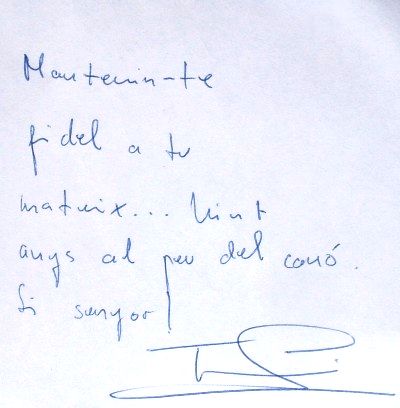 Mantenin-te
fidel a tu
mateix... Vint
anys al peu del canó.
Si senyor!